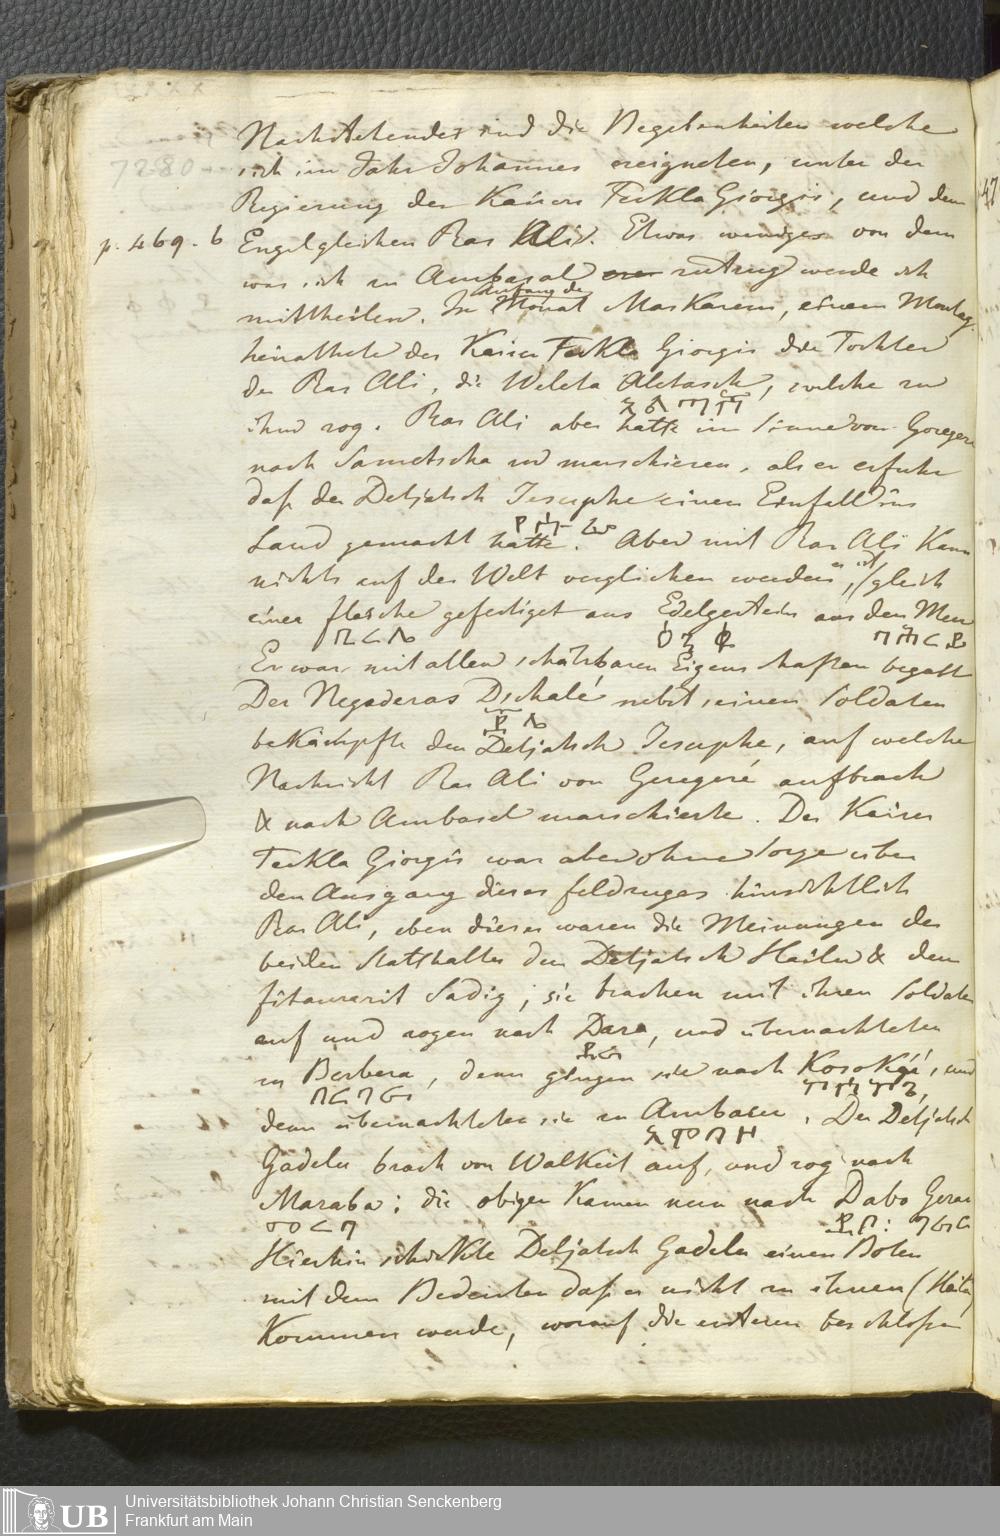 Nachstehendes sind die Begebenheiten welche
sich im Jahr Johannes ereigneten, unter der
Regierung des Kaisers Teckla Giorgis, und dem
p. 469. b Engelgleichen Ras Ali. Etwas weniges von dem
was sich in Ambasal zutrug werde ich
Anfang des
mittheilen. Im Monat Maskarem, einem Montag,
heirathete der Kaiser Teckla Giorgis die Tochter
des Ras Ali, die Weleta Aletasch, welche zu
ihm zog. Ras Ali aber hatte im Sinne von Goregere
nach Sametscha zu marschieren, als er erfuhr
daß der Detjatsch Jesuphe einen Einfall ins
Land gemacht hatte. Aber mit Ras Ali kann
nichts auf der Welt verglichen werden, er ist gleich
einer flasche gefertiget aus Edelgestein aus dem Meer
በርሌ ዕንቈ
Er war mit allen schätzbaren Eigenschaften begabt
Der Negaderas Dschalé nebst seinen Soldaten
ጄሌ
bekämpfte den Detjatsch Jesuphe, auf welche
Nachricht Ras Ali von Geregeré aufbrach
& nach Ambasel marschierte. Der Kaiser
Teckla Giorgis war aber ohne Sorge über
den Ausgang dieses feldzuges hinsichtlich
Ras Ali, eben dieses waren die Meinungen der
beiden Statthalter den Detjatsch Hailu & dem
fitaurarit Sadig; sie brachen mit ihren Soldaten
auf und zogen nach Dara, und übernachteten
ደራ
in Berbera, dann gingen sie nach
በርበራ
dann übernachteten sie in Ambasu. Der Detjatsch
አምበዝ
Gadelu brach von Walkeit auf, und zog nach
Maraba; die obigen kamen nun nach Dabo Geras
መርባ
Hierhin schickte Detjatsch Gadelu einen Boten
mit dem Bedeuten daß er nicht zu ihnen (Hailu)
kommen werde, worauf die ersteren beschloßen
47
Universitätsbibliothek Johann Christian Senckenberg
Frankfurt am Main
UB